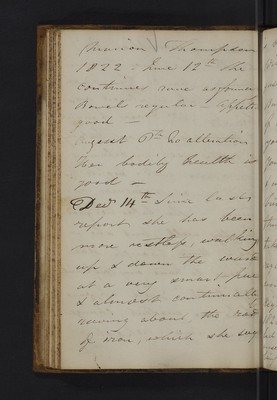 Marion Thompson
1822 June 12th She
continues much as former
Bowels regular Appetite
good —
August 6th No alteration
Her bodily health is
good —
Decr 14th Since last
report she has been
more restless, walking
up & down the ward
at a very smart pace
& almost continually
raving about the rod
of iron, which she says